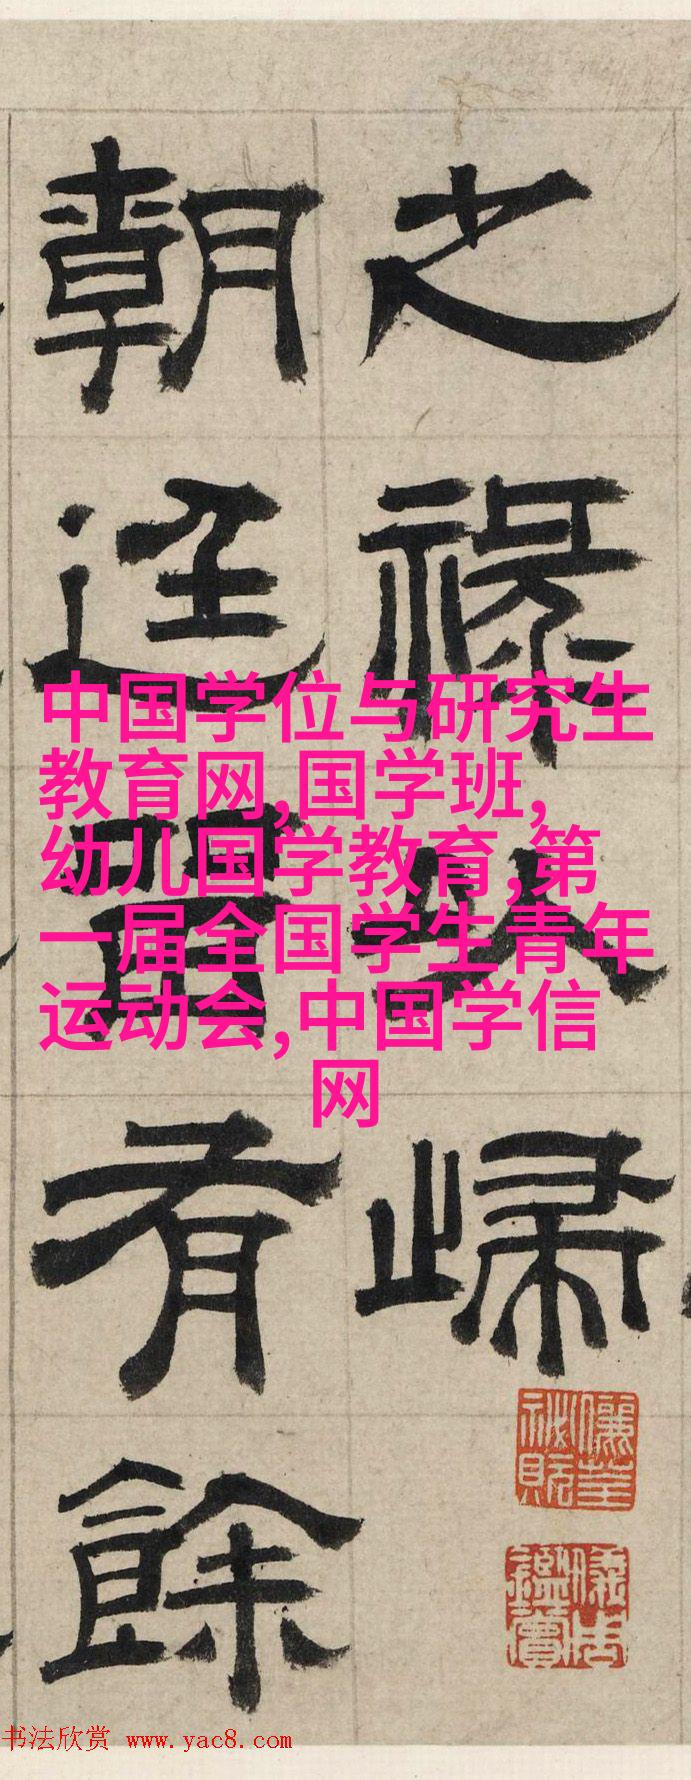 之祿以歸
朝廷留有餘
中国学位与研究生
教育网,国学班,
幼儿国学教育,第
一届全国学生青年
运动会,中国学信
网
书法欣赏 www.yac8.com